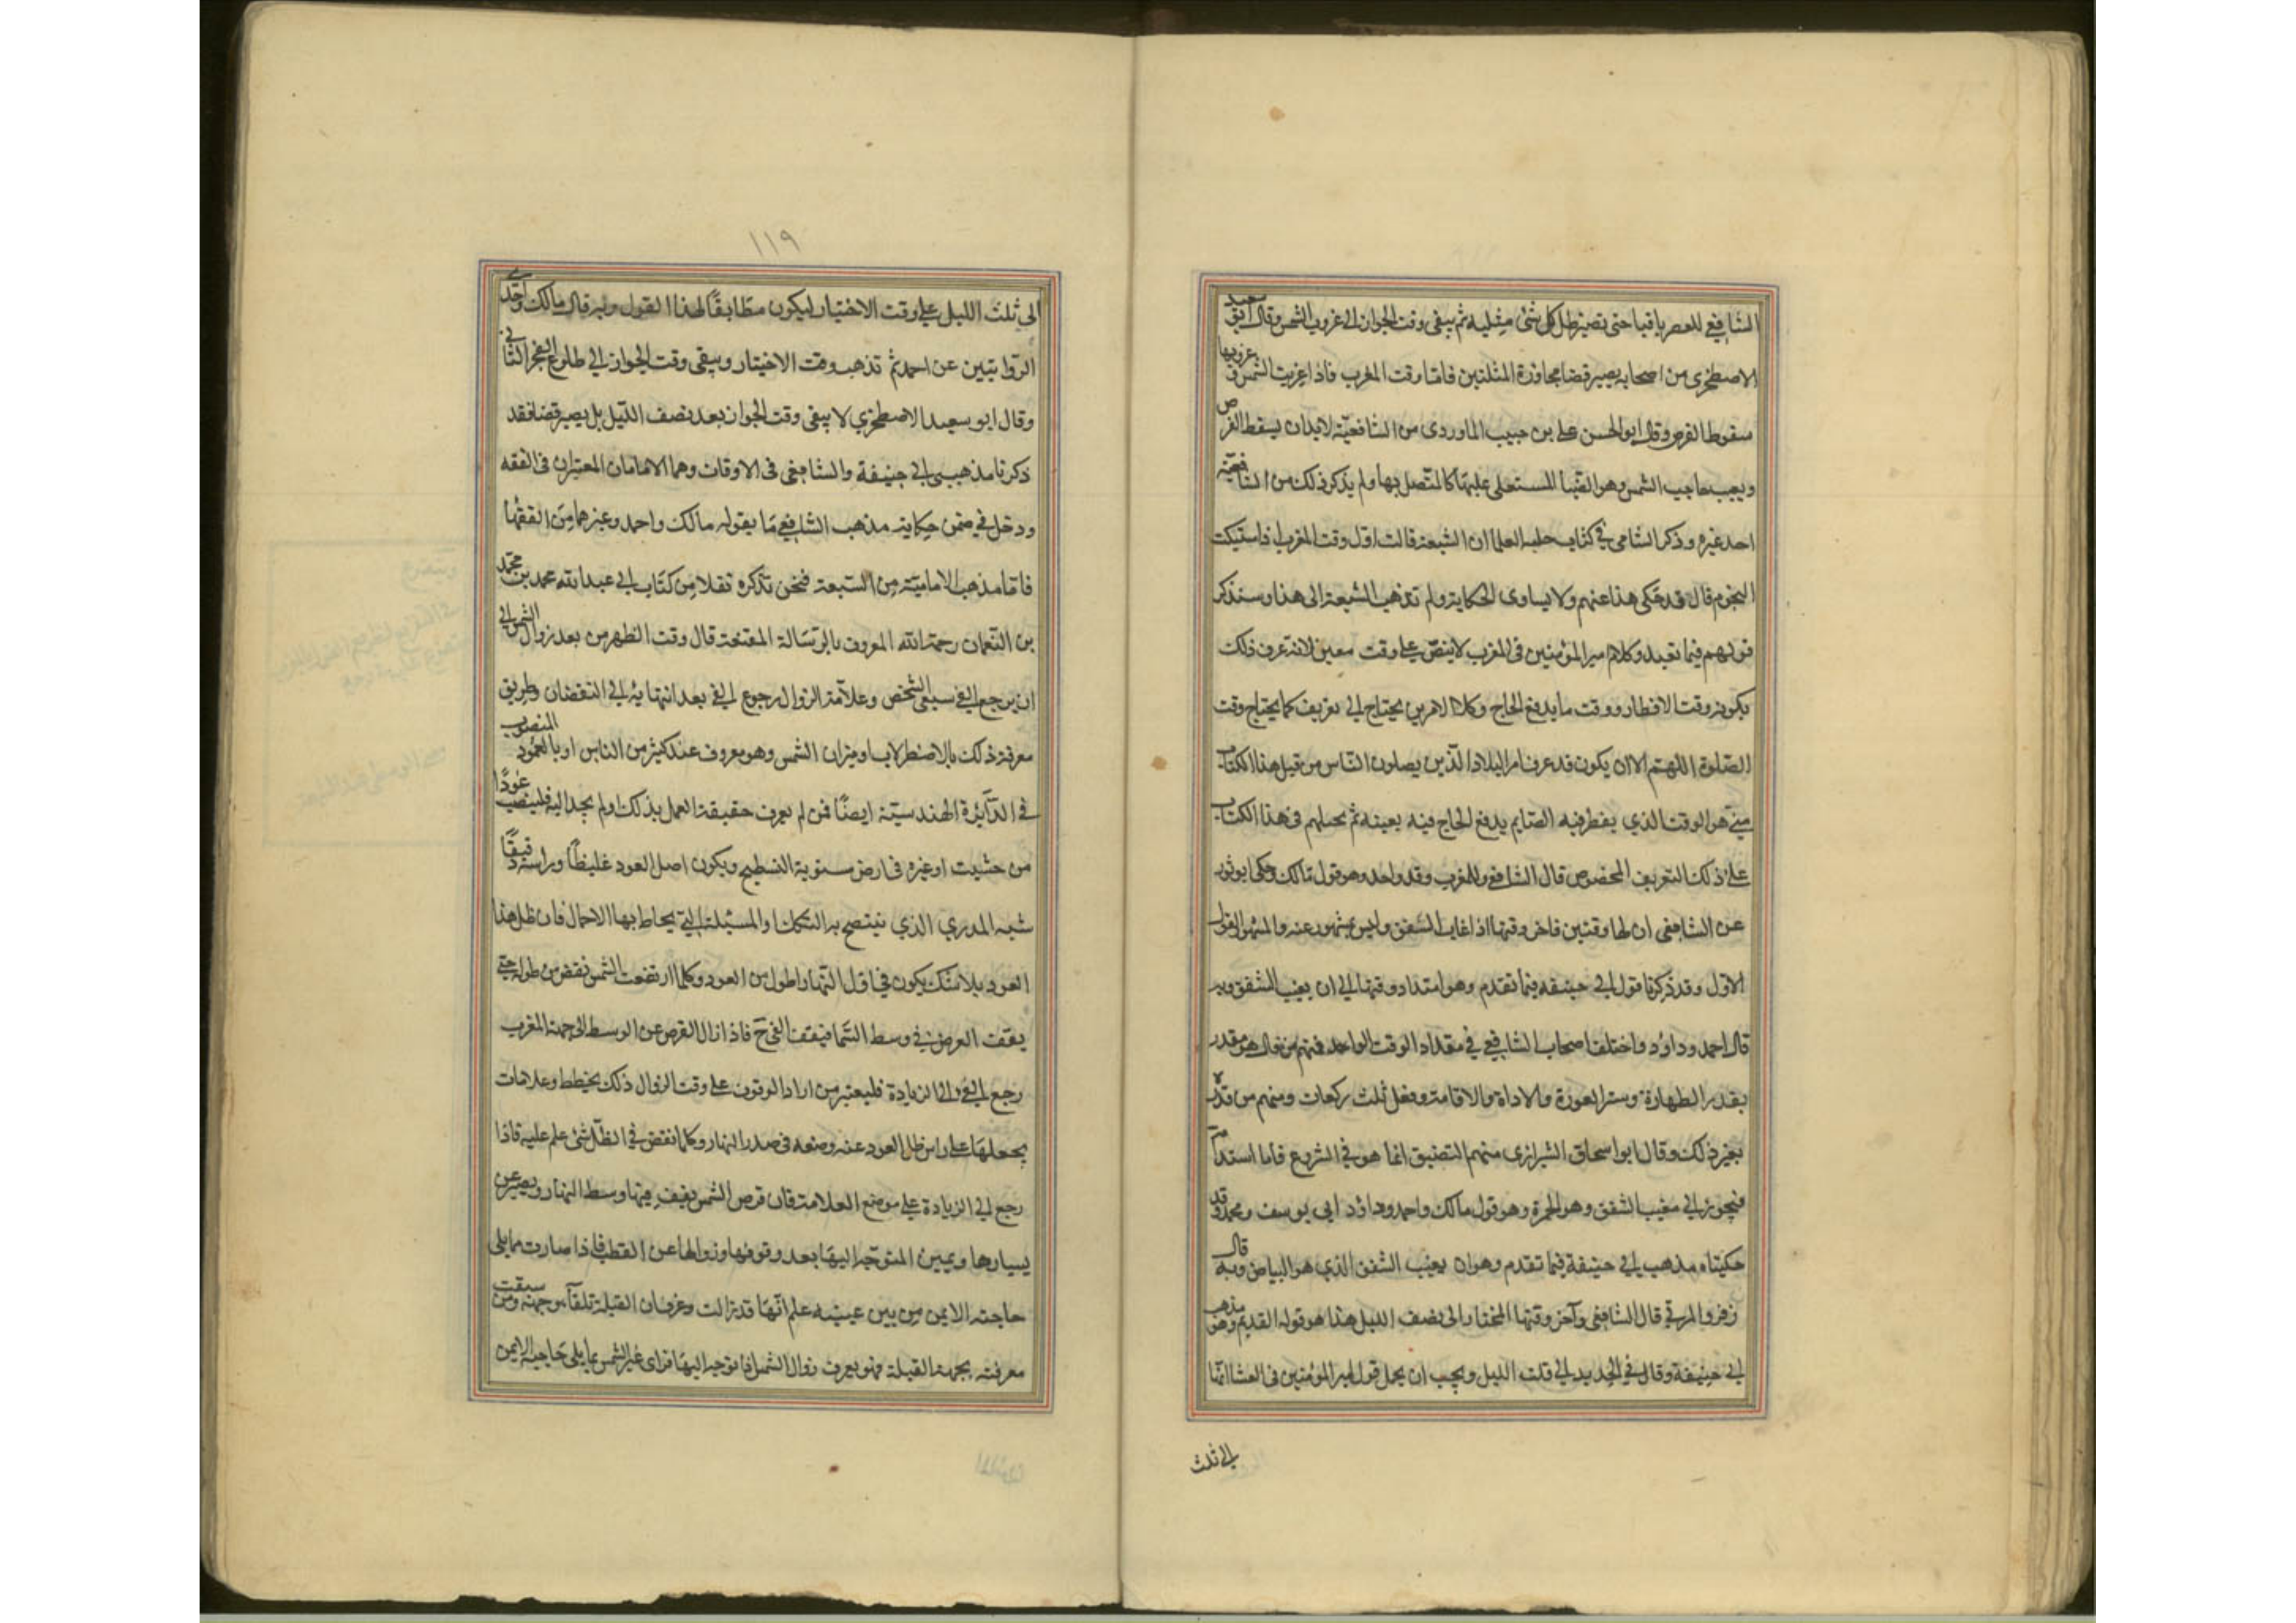 الشافعي للعصر باقيا حتى تصير ظل كل شئ مثليه ثم يبقى وقت الجواز الى غروب الشمس وقال ابو سعيد
الاصطخرى من اصحابه يصير قضا مجاوزة المثلين فاما وقت المغرب فاذا غربت الشمس غروبها
سقوط القرص وقال ابو الحسن على بن حبيب الماوردى من الشافعية لا بد ان يسقط القرص
ويغيب حاجب الشمس وهو الضيا المستعلى عليها كالمتصل بها ولم يذكر ذلك من الشافعية
احد غيره وذكر الشاشى في كتاب حلية العلما ان الشيعة قالت اول وقت المغرب اذا اشتبكت
النجوم قال قد حكى هذا عنهم ولا يساوى الحكاية ولم تذهب الشيعة الى هذا وسنذكر
قولهم فيما بعد وكلام امير المؤمنين فى المغرب لا ينص على وقت معين لانه عرف ذلك
بكونه وقت الافطار ووقت ما يدفع الحاج وكلا الامرين يحتاج الى تعريف كما يحتاج وقت
الصلوة اللهم الا ان يكون قد عرف امرا البلاد الذين يصلون الناس من قبل هذا الكتاب
متى هو الوقت الذي يفطر فيه الصايم يدفع الحاج فيه بعينه ثم يحيلهم فى هذا الكتاب
على ذلك التعريف المخصوص قال الشافعى وللمغرب وقت واحد وهو قول مالك وحكى ابو ثور
عن الشافعى ان لها وقتين فاخر وقتها اذا غاب الشفق وليس بمشهور عنه والمشهور القول
الاول وقد ذكرنا قول ابى حنيفه فيما تقدم وهو امتداد وقتها الى ان يغيب الشفق وبه
قال احمد وداود واختلف اصحاب الشافعي في مقدار الوقت الواحد فمنهم من قال هو مقدر
بقدر الطهارة وستر العورة والاذان والاقامة وفعل ثلث ركعات ومنهم من قدره
بغير ذلك وقال ابو اسحاق الشيرازى منهم التضييق انما هو في الشروع فاما استدامته
فيجوز الى مغيب الشفق وهو الحمرة وهو قول مالك واحمد وداود ابى يوسف ومحمد وقد
حكيناه مذهب ابى حنيفة فيما تقدم وهو ان يغيب الشفق الذي هو البياض وبه قال
زفر والمزني قال الشافعى وآخر وقتها المختار الى نصف الليل هذا هو قوله القديم وهو مذهب
ابى حنيفة وقال في الجديد الى ثلث الليل ويجب ان يحمل قول امير المؤمنين فى العشا انها
الى ثلث
١١٩
الى ثلث الليل على وقت الاختيار ليكون مطابقًا لهذا القول وبه قال مالك واحدى
الروايتين عن احمد ثم تذهب وقت الاختيار ويبقى وقت الجواز الى طلوع الفجر الثانى
وقال ابو سعيد الاصطخرى لا يبقى وقت الجواز بعد نصف الليل بل يصير قضا فقد
ذكرنا مذهبى ابى حنيفة والشافعى فى الاوقات وهما الامامان المعتبران فى الفقه
ودخل في ضمن حكاية مذهب الشافعي ما يقوله مالك واحمد وغيرهما من الفقها
فاما مذهب الامامية من الشيعة فنحن نذكره نقلا من كتاب ابى عبد الله محمد بن محمد
بن النعمان رحمة الله المعروف بالرسالة المقنعة قال وقت الظهر من بعد زوال الشمس الى
ان يرجع الفئ سبعى الشخص وعلامة الزوال رجوع الفئ بعد انتهايه الى النقصان وطريق
معرفة ذلك بالاصطرلاب او ميزان الشمس وهو معروف عند كثير من الناس او بالعمود المنصوب
في الدائرة الهندسية ايضًا فمن لم يعرف حقيقة العمل بذلك او لم يجد اليه فلينصب عودًا
من خشب او غيره فى ارض مستوية التسطيح ويكون اصل العود غليظًا وراسه دقيقًا
شبه المدري الذي ينتصح به التكك او المسئلة التي يحاط بها الاحمال فان ظل هذا
العود بلا شك يكون في اول النهار اطول من العود وكلما ارتفعت الشمس نقص من طوله حتى
يقف القرص في وسط السما فيقف الفئ ح فاذا زال القرص عن الوسط الى جهة المغرب
رجع الفئ الى الزيادة فليعتبر من اراد الوقوف على وقت الزوال ذلك بخطط وعلامات
يجعلها على راس ظل العود عند وضعه فى صدر النهار وكلما نقص في الظل شئ علم عليه فاذا
رجع الى الزيادة على موضع العلامة فان قرص الشمس يقف فيها وسط النهار ويصير عن
يسارها ويمين المتوجه اليها بعد وقوفها وزوالها عن القطب فاذا صارت مما يلى
حاجبه الايمن من بين عينيه علم انها قد زالت وعرف ان القبلة تلقآ وجهه ومن سبقت
معرفته بجهة القبلة فهو يعرف زوال الشمس اذا توجه اليها فراى عين الشمس مما يلى حاجبه الايمن